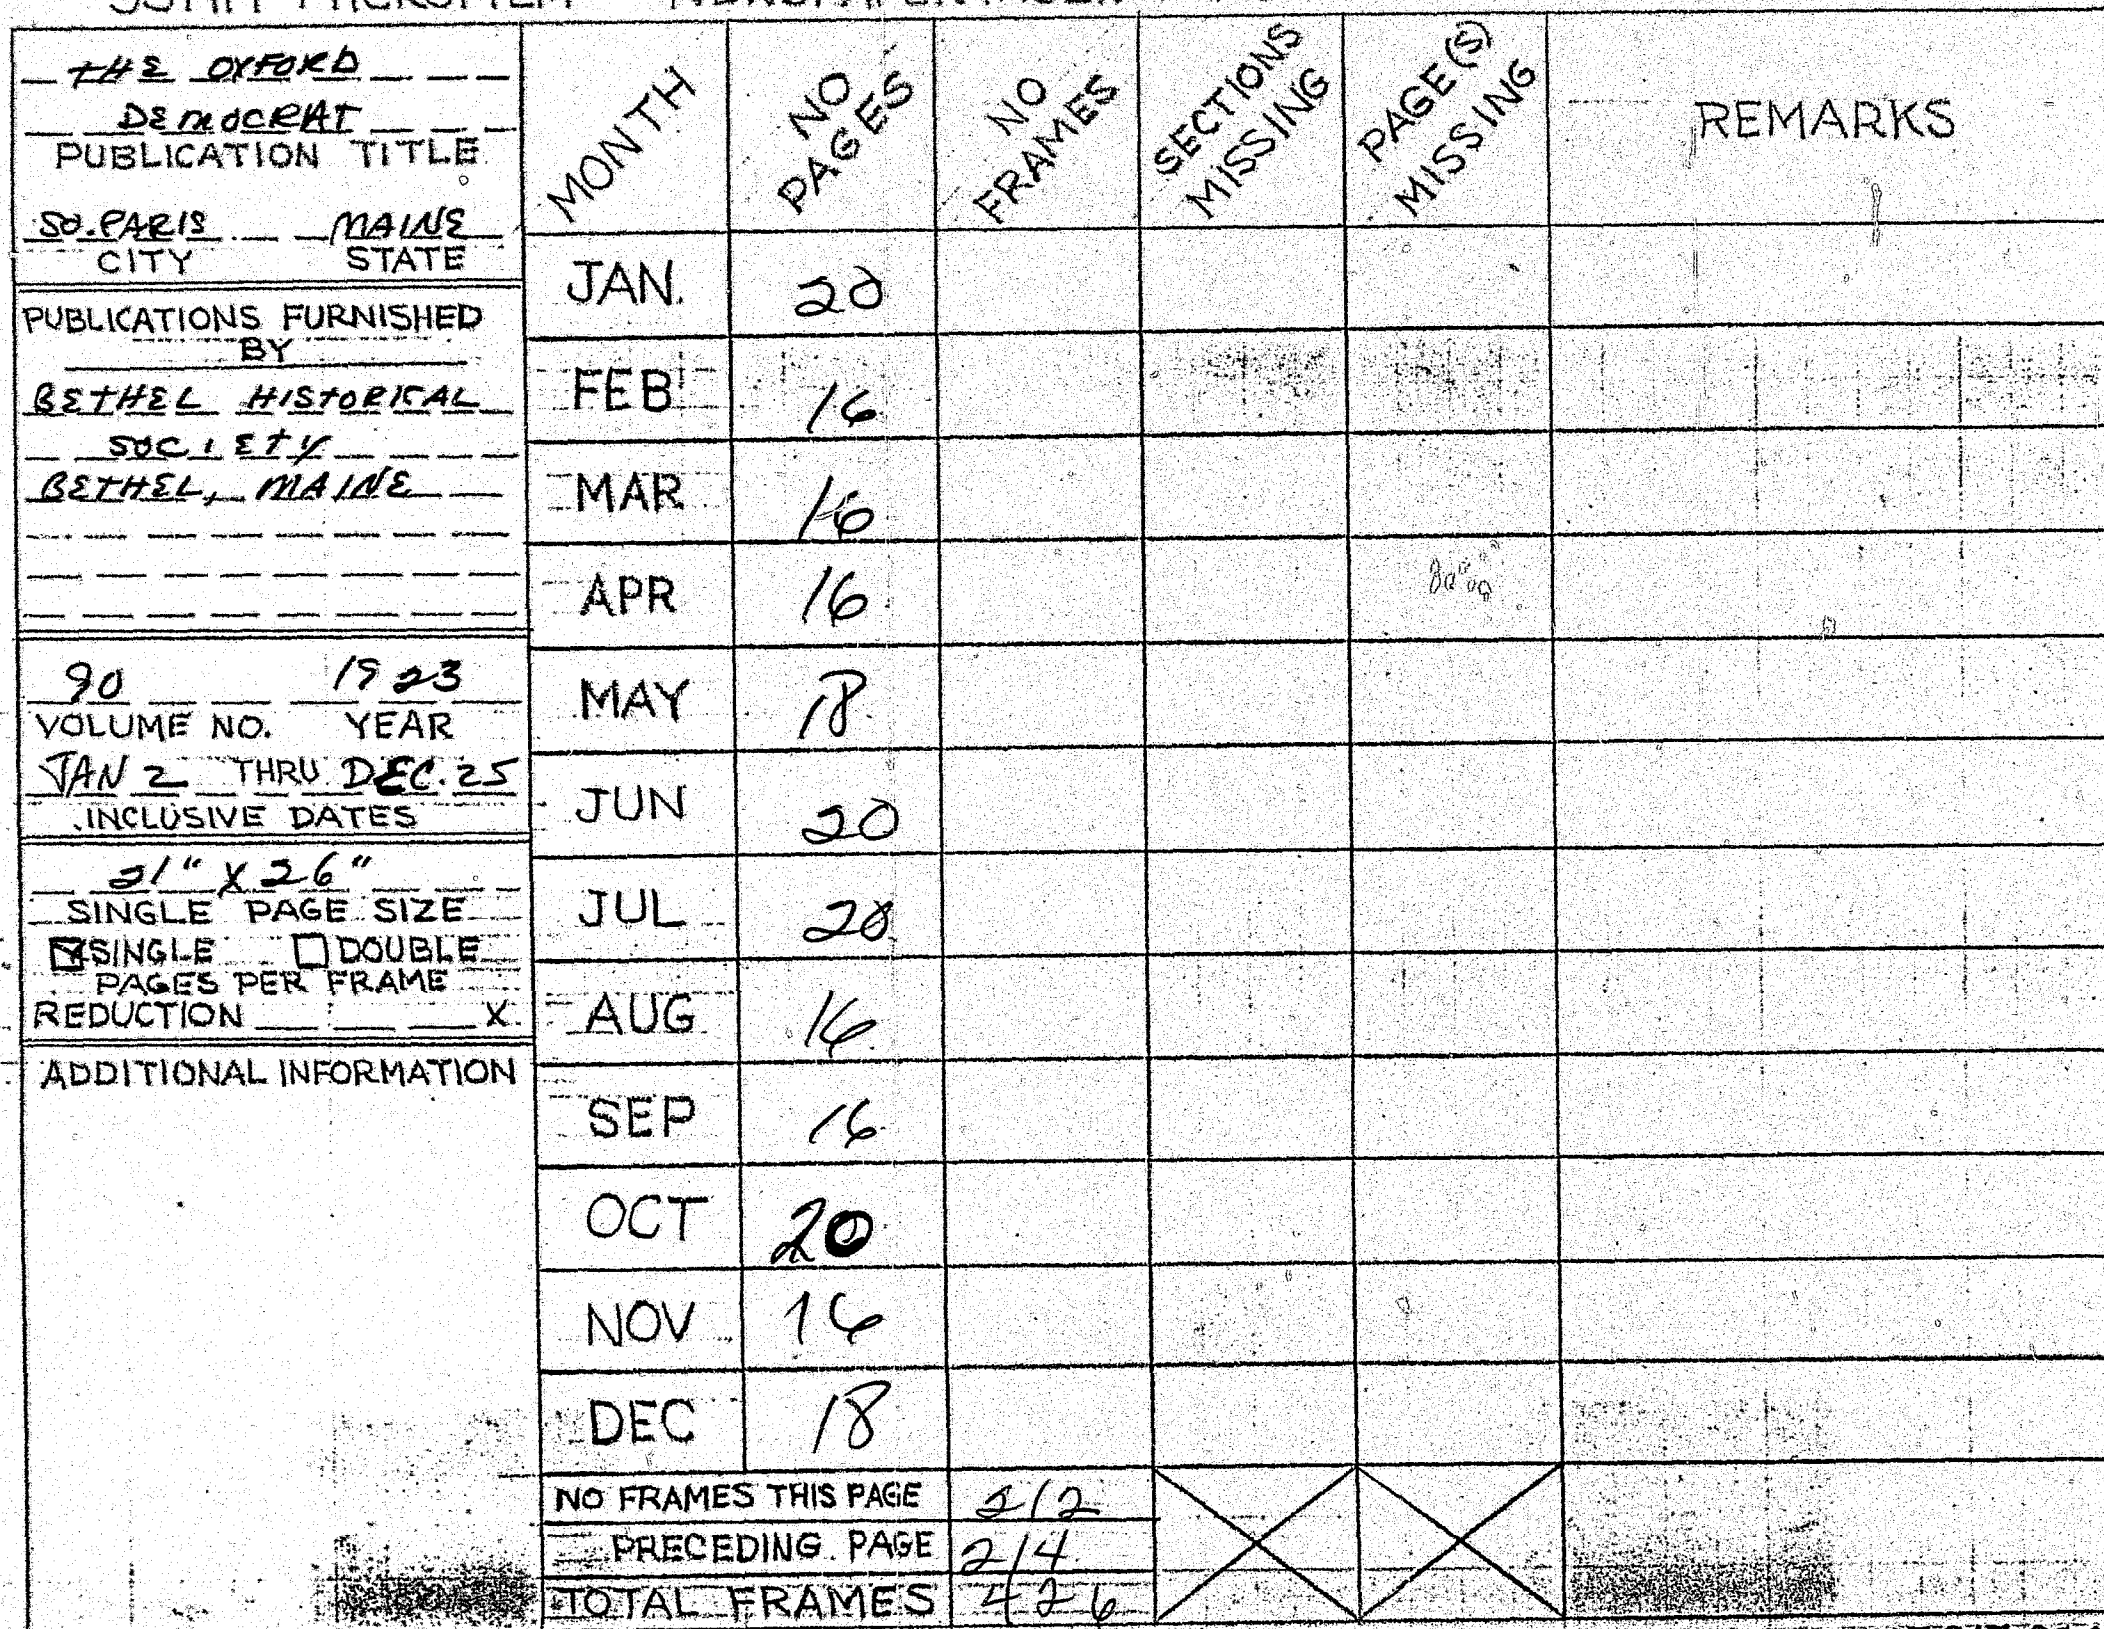 THE OXFORD
DEMOCRAT
PUBLICATION TITLE
SO. PARIS MAINE
CITY STATE
PUBLICATIONS FURNISHED
BY
BETHEL HISTORICAL
SOCIETY
BETHEL, MAINE
90 1923
VOLUME NO. YEAR
JAN 2 THRU DEC. 25
INCLUSIVE DATES
21" X 26"
SINGLE PAGE SIZE
SINGLE DOUBLE
PAGES PER FRAME
REDUCTION X
ADDITIONAL INFORMATION
MONTH NO PAGES NO FRAMES SECTIONS MISSING PAGE(S) MISSING REMARKS
JAN. 20
FEB 16
MAR 16
APR 16
MAY 18
JUN 20
JUL 20
AUG 16
SEP 16
OCT 20
NOV 16
DEC 18
NO FRAMES THIS PAGE 212
PRECEDING PAGE 214
TOTAL FRAMES 426